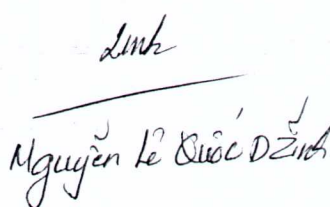 Linh
Nguyễn Lê Quốc DZĩnh